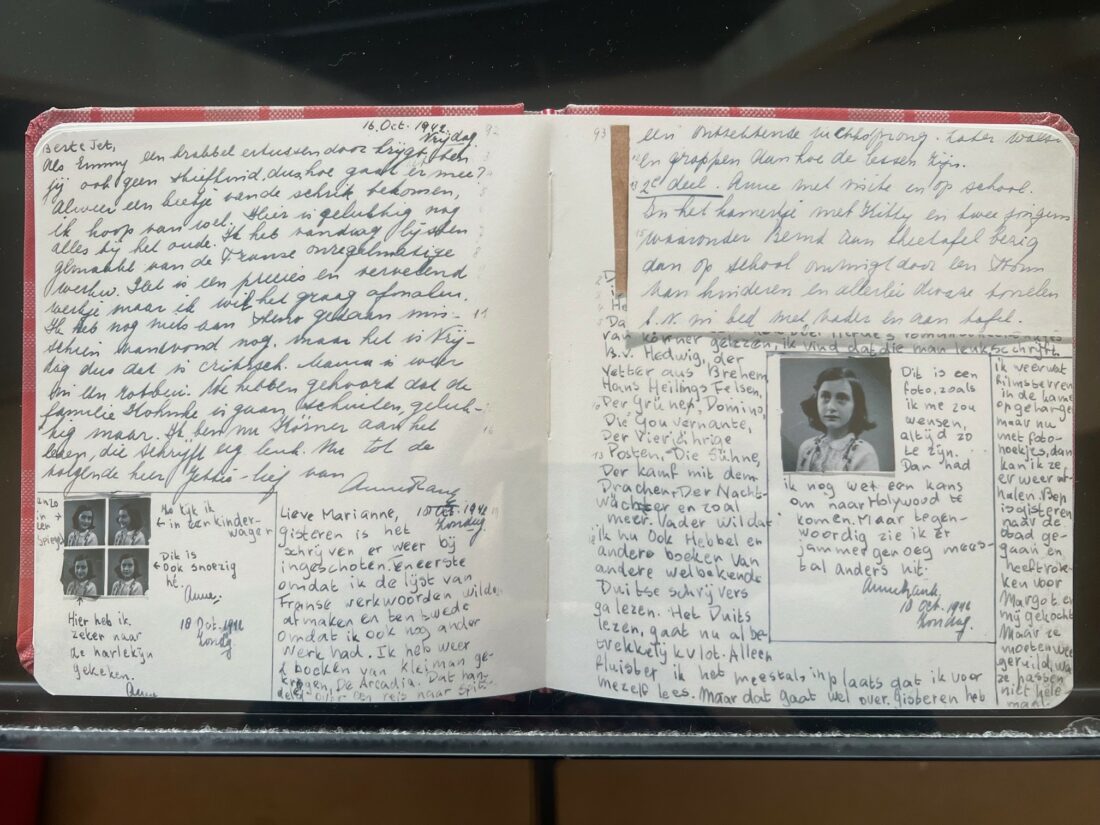 16 Oct. 1942 92
Vrijdag
Beste Jet,
Als Emmy een krabbel ertussendoor krijgt, ben
jij ook geen stiefkind, dus hoe gaat er mee?
Alweer een beetje van de schrik bekomen,
ik hoop van wel. Hier is gelukkig nog
alles bij het oude. Ik heb vandaag lijsten
gemaakt van de Franse onregelmatige
werkw. Het is een precies en vervelend
werkje maar ik wil het graag afmaken.
Ik heb nog niets aan Steno gedaan mis-
schien vanavond nog, maar het is Vrij-
dag dus dat is critisch. Mama is weer
in
We hebben gehoord dat de
familie is gaan schuilen, geluk-
kig maar. Ik ben nu Körner aan het
lezen, die schrijft erg leuk. Nu tot de
volgende keer Jettie-lief van
Anne Frank
enzo
in
een
spiegel
Ho kijk ik
in een kinder-
wager
Dik is
ook snoezig
hé.
Anne.
18 Oct. 1942
Zondag
Hier heb ik
zeker naar
de harlekijn
gekeken.
Anne
Lieve Marianne, 18 Oct. 1942
Zondag
gisteren is het
schrijven er weer bij
ingeschoten. Ten eerste
omdat ik de lijst van
Franse werkwoorden wilde
afmaken en ten twede
omdat ik ook nog ander
werk had. Ik heb weer
2 boeken van Kleiman ge-
kregen, De Arcadia. Dat han-
delt over een reis naar Spitz-
93
een ontzettende luchtsprong. Later walsen
en grappen dan hoe de lessen zijn.
2e deel. Anne met visite en op school.
In het kamertje met Kitty en twee jongens
waaronder Bernd aan theetafel bezig
dan op school omringd door een drom
van kinderen en allerlei dwaze tonelen
b.v. in bed met vader en aan tafel.
D
He
Da
van Körner gelezen, ik vind dat die man leuk schrijft.
B.v. Hedwig, der
Vetter aus Brehem
Hans Heilings Felsen,
Der Grüner Domino,
Die Gouvernante,
Der Vierjährige
Posten, Die Sühne,
Der Kamf mit dem
Drachen, Der Nacht-
wächter en zoal
meer. Vader wil dat
ik nu ook Hebbel en
andere boeken van
andere welbekende
Duitse schrijvers
ga lezen. Het Duits
lezen, gaat nu al be-
trekkelijk vlot. Alleen
fluister ik het meestal inplaats dat ik voor
mezelf lees. Maar dat gaat wel over. gisteren heb
Dit is een
foto, zoals
ik me zou
wensen,
altijd zo
te zijn.
Dan had
ik nog wel een kans
om naar Holywood te
komen. Maar tegen-
woordig zie ik er
jammer genoeg mees-
tal anders uit.
Anne Frank.
18 Oct. 1942
Zondag.
ik weer wat
filmsterren
in de kamer
opgehangen
maar nu
met foto-
hoekjes, dan
kan ik ze
er weer af-
halen. Bep
is gisteren
naar de
stad ge-
gaan en
heeft rok-
ken voor
Margot en
mij gekocht
Maar ze
moeten weer
geruild, want
ze passen
niet hele-
maal.